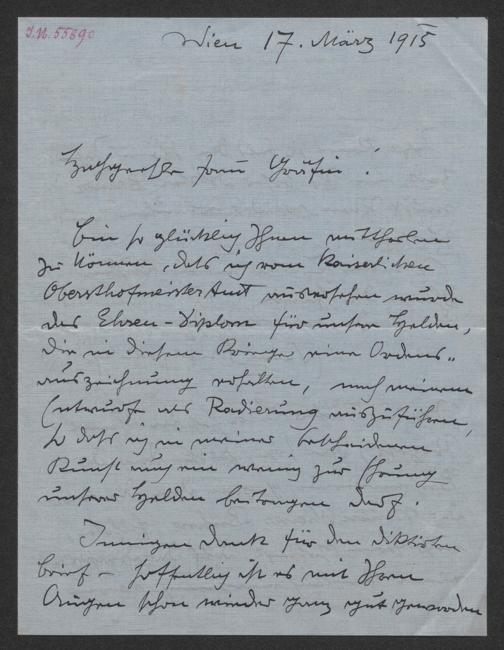 J.N. 55690
Wien 17. März 1915
Hochgeehrte Frau Gräfin!
Bin so glücklich Ihnen mittheilen
zu können, dass ich vom Kaiserlichen
Obersthofmeister Amt ausersehen wurde
das Ehren-Diplom für unsere Helden,
die in diesem Kriege eine Ordens-
auszeichnung erhalten, nach meinem
Entwurfe als Radierung auszuführen,
so dass ich in meiner bescheidenen
Kunst auch ein wenig zur Ehrung
unserer Helden beitragen darf.
Innigen Dank für den diktirten
Brief - hoffentlich ist es mit Ihren
Augen schon wieder ganz gut geworden